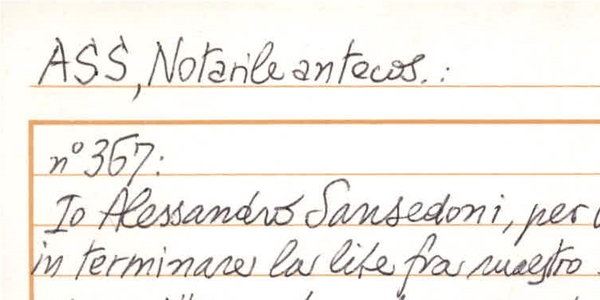 ASS, Notarile antecos.:
n° 367:
Io Alessandro Sansedoni, per
in terminare la lite fra maestro